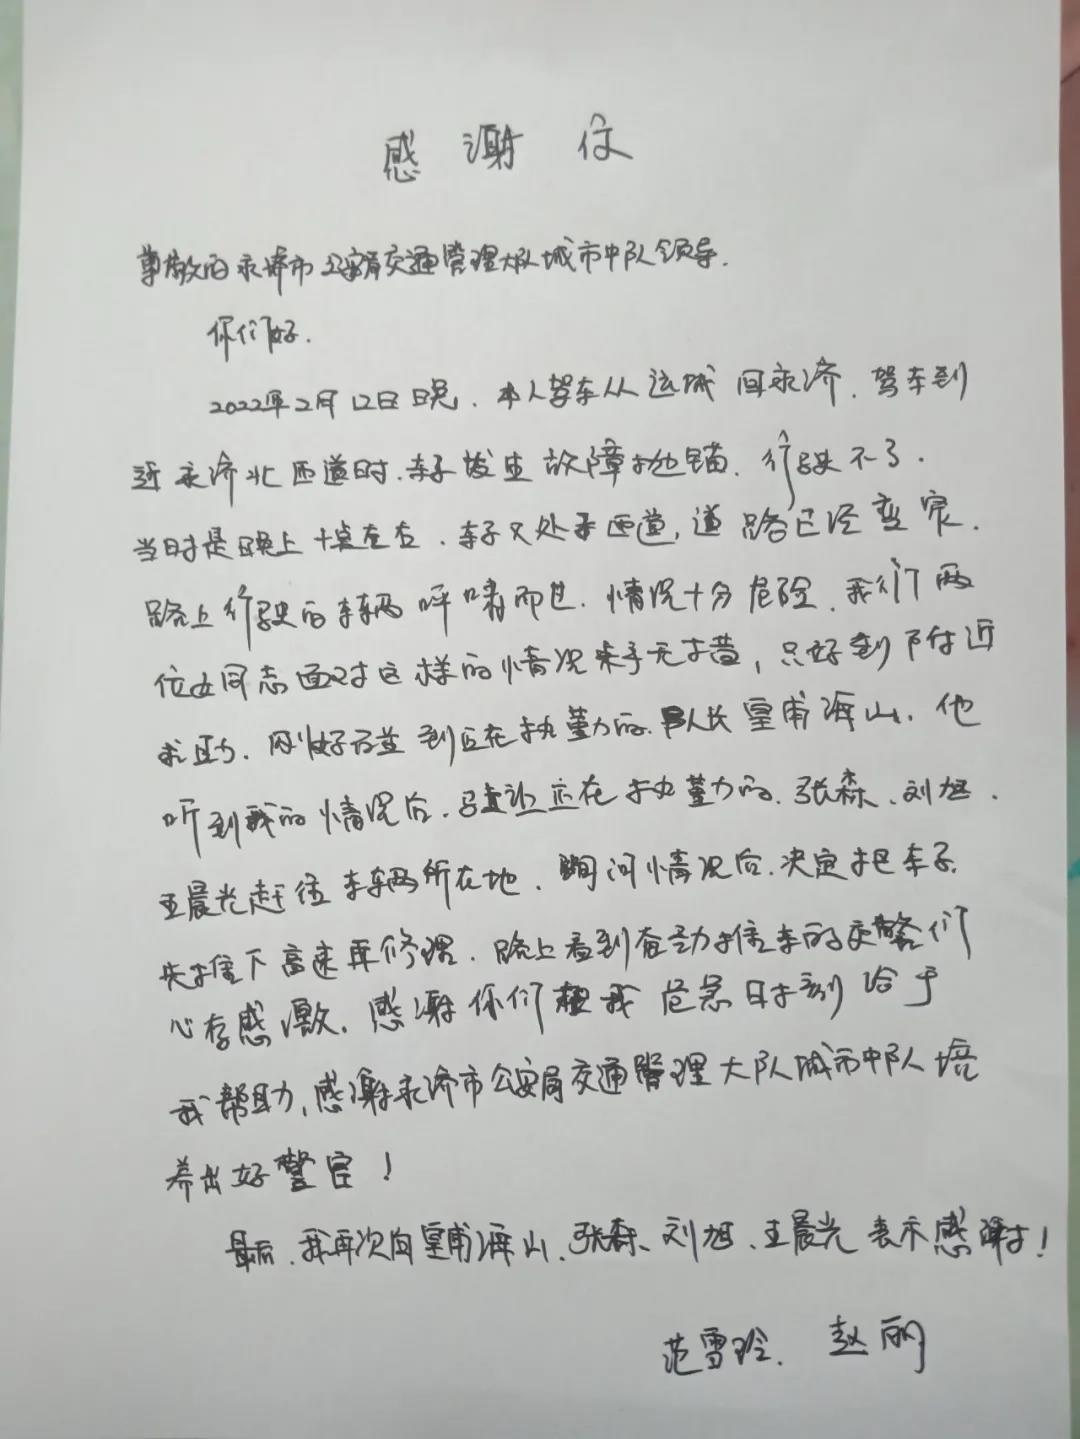 感谢信
尊敬的永济市公安局交通管理大队城市中队领导.
你们好.
2022年2月12日晚.本人驾车从运城回永济.驾车到
近永济北匝道时.车子发生故障抛锚.行驶不了.
当时是晚上十点左右.车子又处于匝道,道路已经变窄.
路上行驶的车辆呼啸而过.情况十分危险.我们两
位女同志面对这样的情况束手无措,只好到附近
求助.刚好碰到正在执勤的队长皇甫海山.他
听到我的情况后.马上让正在执勤的.张森、刘旭.
王晨光赶往车辆所在地.询问情况后.决定把车子.
先推下高速再修理.路上看到奋力推车的交警们
心存感激.感谢你们在我危急时刻给予
我帮助,感谢永济市公安局交通管理大队城市中队培
养出好警官!
最后.我再次向皇甫海山、张森、刘旭、王晨光表示感谢!
范雪玲.赵丽